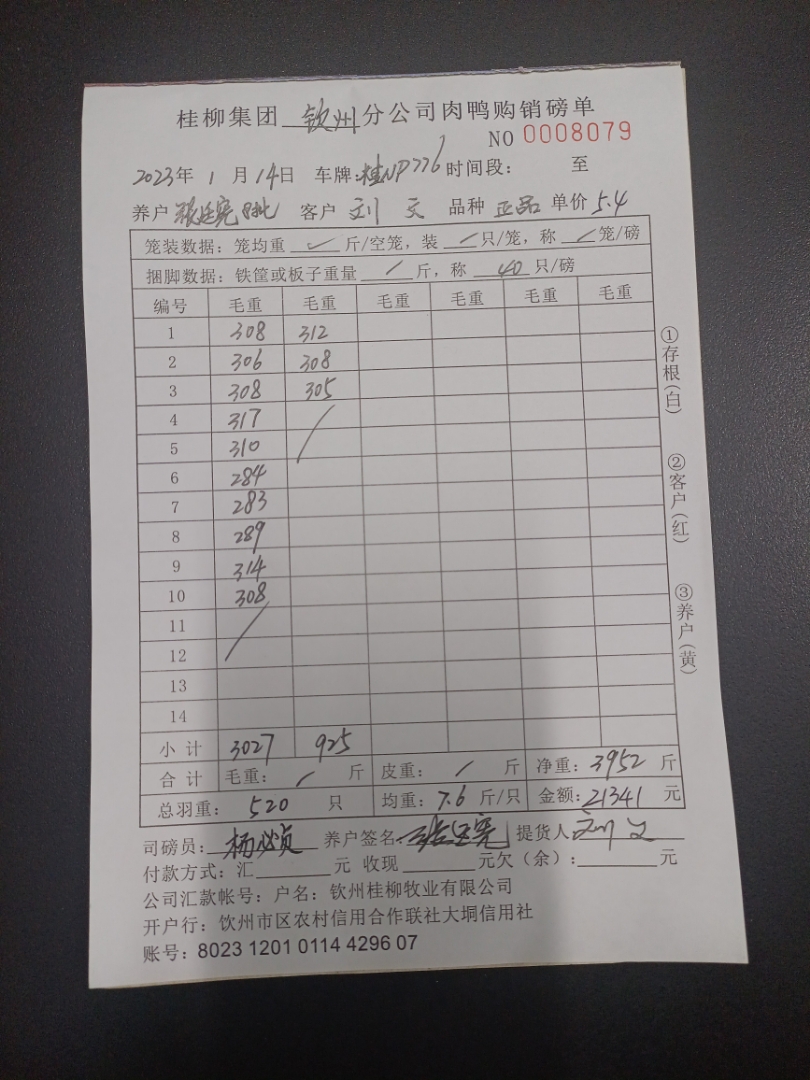 桂柳集团 钦州 分公司肉鸭购销磅单
NO 0008079
2023年 1 月 14日 车牌:桂NP776 时间段: 至
养户 客户 刘文 品种 正品 单价 5.4
笼装数据: 笼均重 ✓ 斤/空笼, 装 / 只/笼, 称 / 笼/磅
捆脚数据: 铁筐或板子重量 / 斤, 称 40 只/磅
编号 毛重 毛重 毛重 毛重 毛重 毛重
1 308 312
2 306 308
3 308 305
4 317 /
5 310
6 284
7 283
8 289
9 314
10 308
11 /
12
13
14
小计 3027 925
合计 毛重: / 斤 皮重: / 斤 净重: 3952 斤
总羽重: 520 只 均重: 7.6 斤/只 金额: 21341 元
司磅员: 杨 养户签名: 提货人 刘文
付款方式: 汇 元 收现 元欠(余): 元
公司汇款帐号: 户名: 钦州桂柳牧业有限公司
开户行: 钦州市区农村信用合作联社大垌信用社
账号: 8023 1201 0114 4296 07
①存根(白)
②客户(红)
③养户(黄)